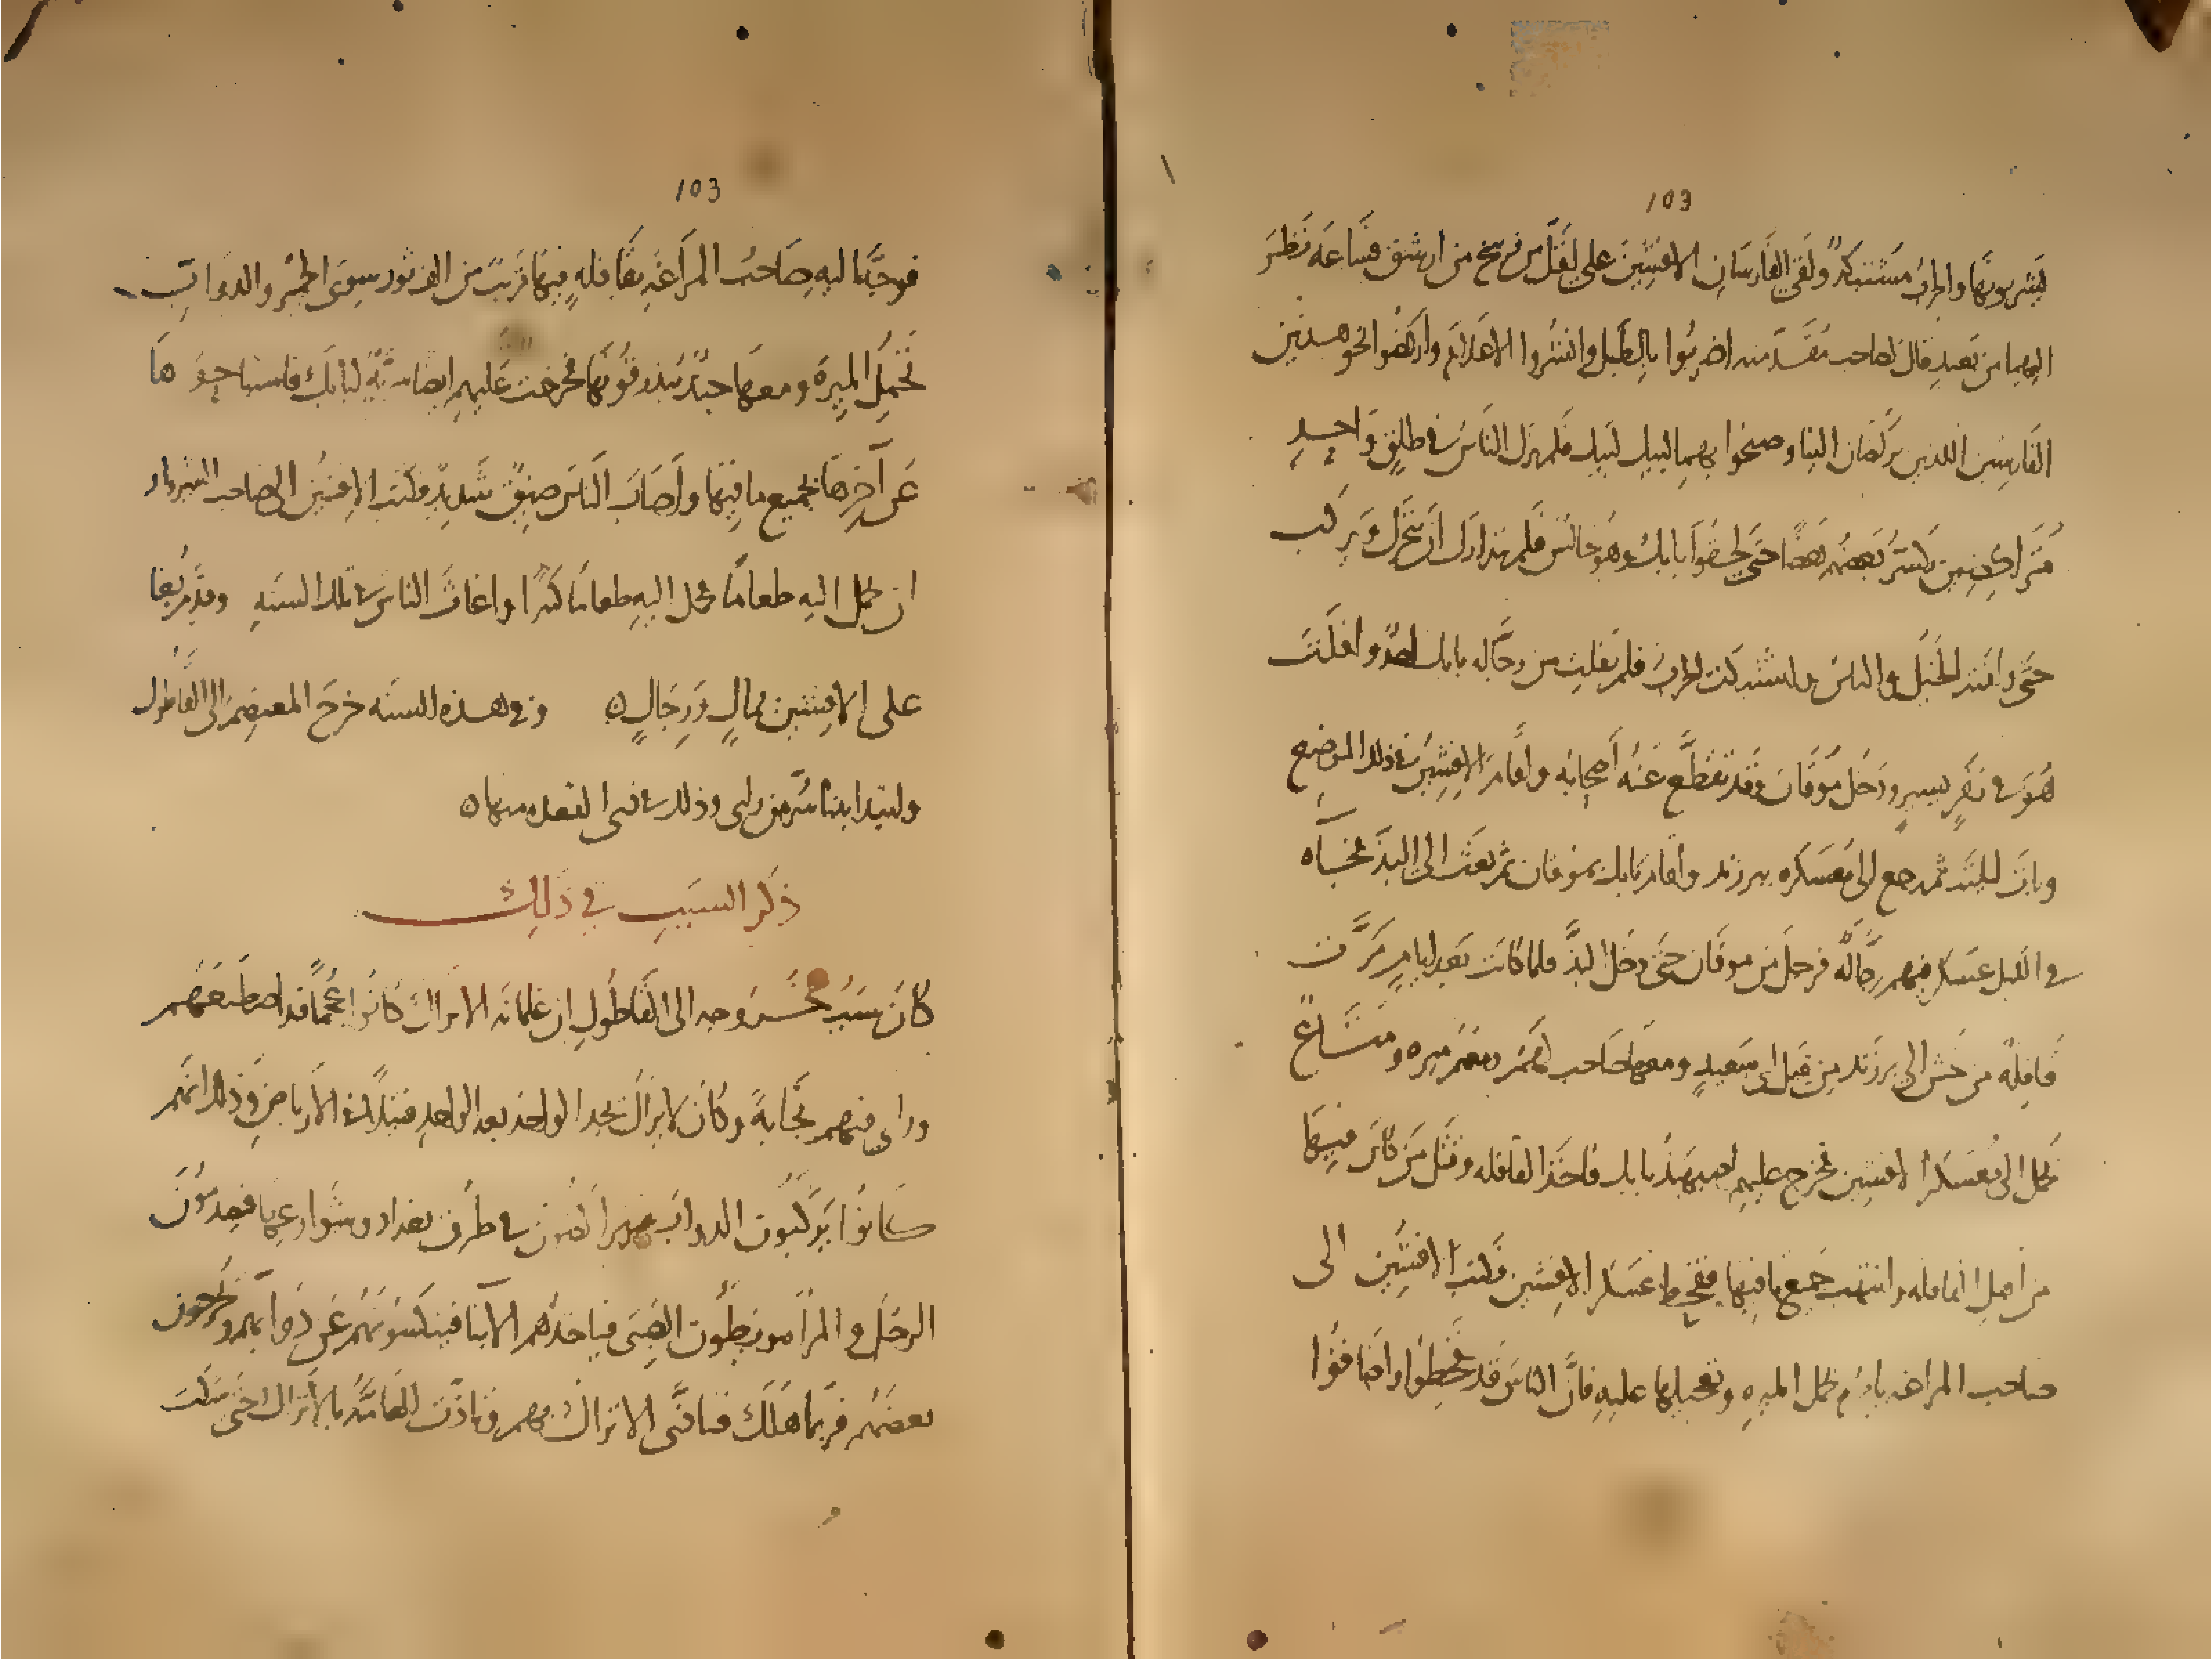 103
يشربونها والحرب مشتبكة ولقي الفارسان الافشين على اقل من فرسخ من ارشق فساعة نظر
اليهما من بعيد قال لصاحب مقدمته اضربوا بالطبل وانشروا الاعلام واركضوا نحو هذين
الفارسين اللذين يركضان الينا وصيحوا بهما لبيك لبيك فلم يزل الناس في طلق واحد
متراكضين يكسر بعضهم بعضا حتى لحقوا بابك وهو جالس فلم يتدارك ان يتحول ويركب
حتى وافته الخيل والناس واشتبكت الحرب فلم يفلت من رجالة بابك احد وافلت
هو في نفر يسير ودخل موقان وقد تقطع عنه اصحابه واقام الافشين في ذلك الموضع
وبات ليلته ثم رجع الى معسكره ببرزند واقام بابك بموقان ثم بعث الى البذ فجاه
في الليل عسكر فيهم رجالة فرحل من موقان حتى دخل البذ فلما كانت بعد ايام مرت
قافلة من خش الى برزند من قبل ابي سعيد ومعها صاحب لهم معهم ميره ومتاع
تحمل الى معسكر الافشين فخرج عليهم اصبهبذ بابك فاخذ القافله وقتل من كان فيها
من اهل القافله وانتهب جميع ما فيها فقحط عسكر الافشين فكتب الافشين الى
صاحب المراغه يامره بحمل الميره وتعجيلها عليه فان الناس قد قحطوا واضاقوا
103
فوجه اليه صاحب المراغه بقافله فيها قريب من الف ثور سوى الحمر والدواب
تحمل الميرة ومعها جند يبذرقونها فخرجت عليهم ايضا سرية لبابك فاستباحوها
عن آخرها بجميع ما فيها واصاب الناس ضيق شديد فكتب الافشين الى صاحب الشيروان
ان يحمل اليه طعاما فحمل اليه طعاما كثيرا واغاث الناس في تلك السنه وقدم بغا
على الافشين بمال ورجال ه وفي هذه السنه خرج المعتصم الى القاطول
وابتدا بنا سر من راى وذلك في ذي القعده منها ه
ذكر السبب في ذلك
كان سبب خروجه الى القاطول ان غلمانه الاتراك كانوا عجما قد اصطنعهم
وراى فيهم نجابة وكان لا يزال يجد الواحد بعد الواحد قتيلا في الارباض وذلك انهم
كانوا يركبون الدواب فيتراكضون في طرق بغداد وشوارعها فيصدمون
الرجل والمراه ويطون الصبي فياخذهم الابنا فينكسونهم عن دوابهم ويجرحون
بعضهم فربما هلك فتاذى الاتراك بهم وتاذت العامة بالاتراك حتى شكت